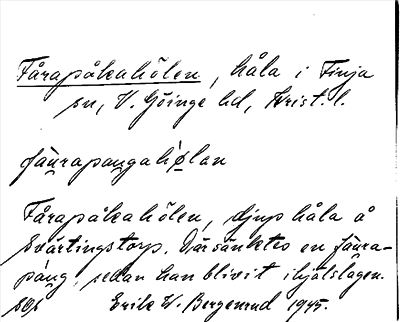 Fårapåkahölen, håla i Finja
sn, V. Göinge hd, Krist. l.
fäurapaugahølan
Fårapåkahölen, djup håla å
Svärtingstorp. Där sänktes en fäura-
påug, sedan han blivit ihjälslagen.
Erik W. Bergenrud 1945.